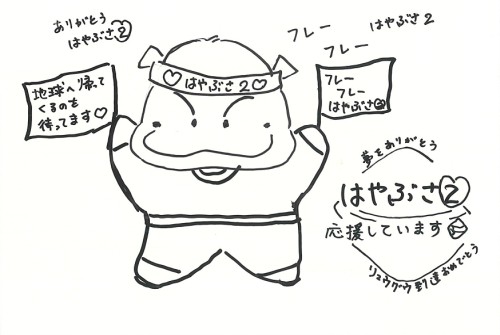 ありがとう
はやぶさ2
フレー
フレー
はやぶさ2
♡はやぶさ2♡
地球へ帰って
くるのを
待ってます♡
フレー
フレー
はやぶさ2
夢をありがとう
はやぶさ2
応援しています
リュウグウ到達おめでとう